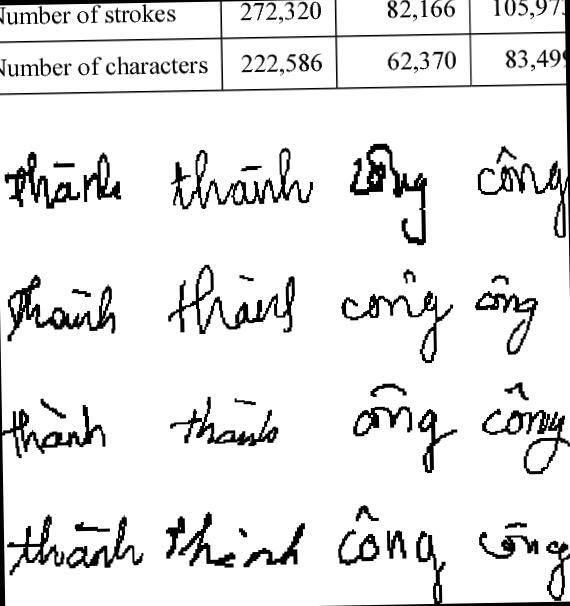 Number of strokes 272,320 82,166 105,97
Number of characters 222,586 62,370 83,49
thành thành công công
thành thành công công
thành thành công công
thành thành công công